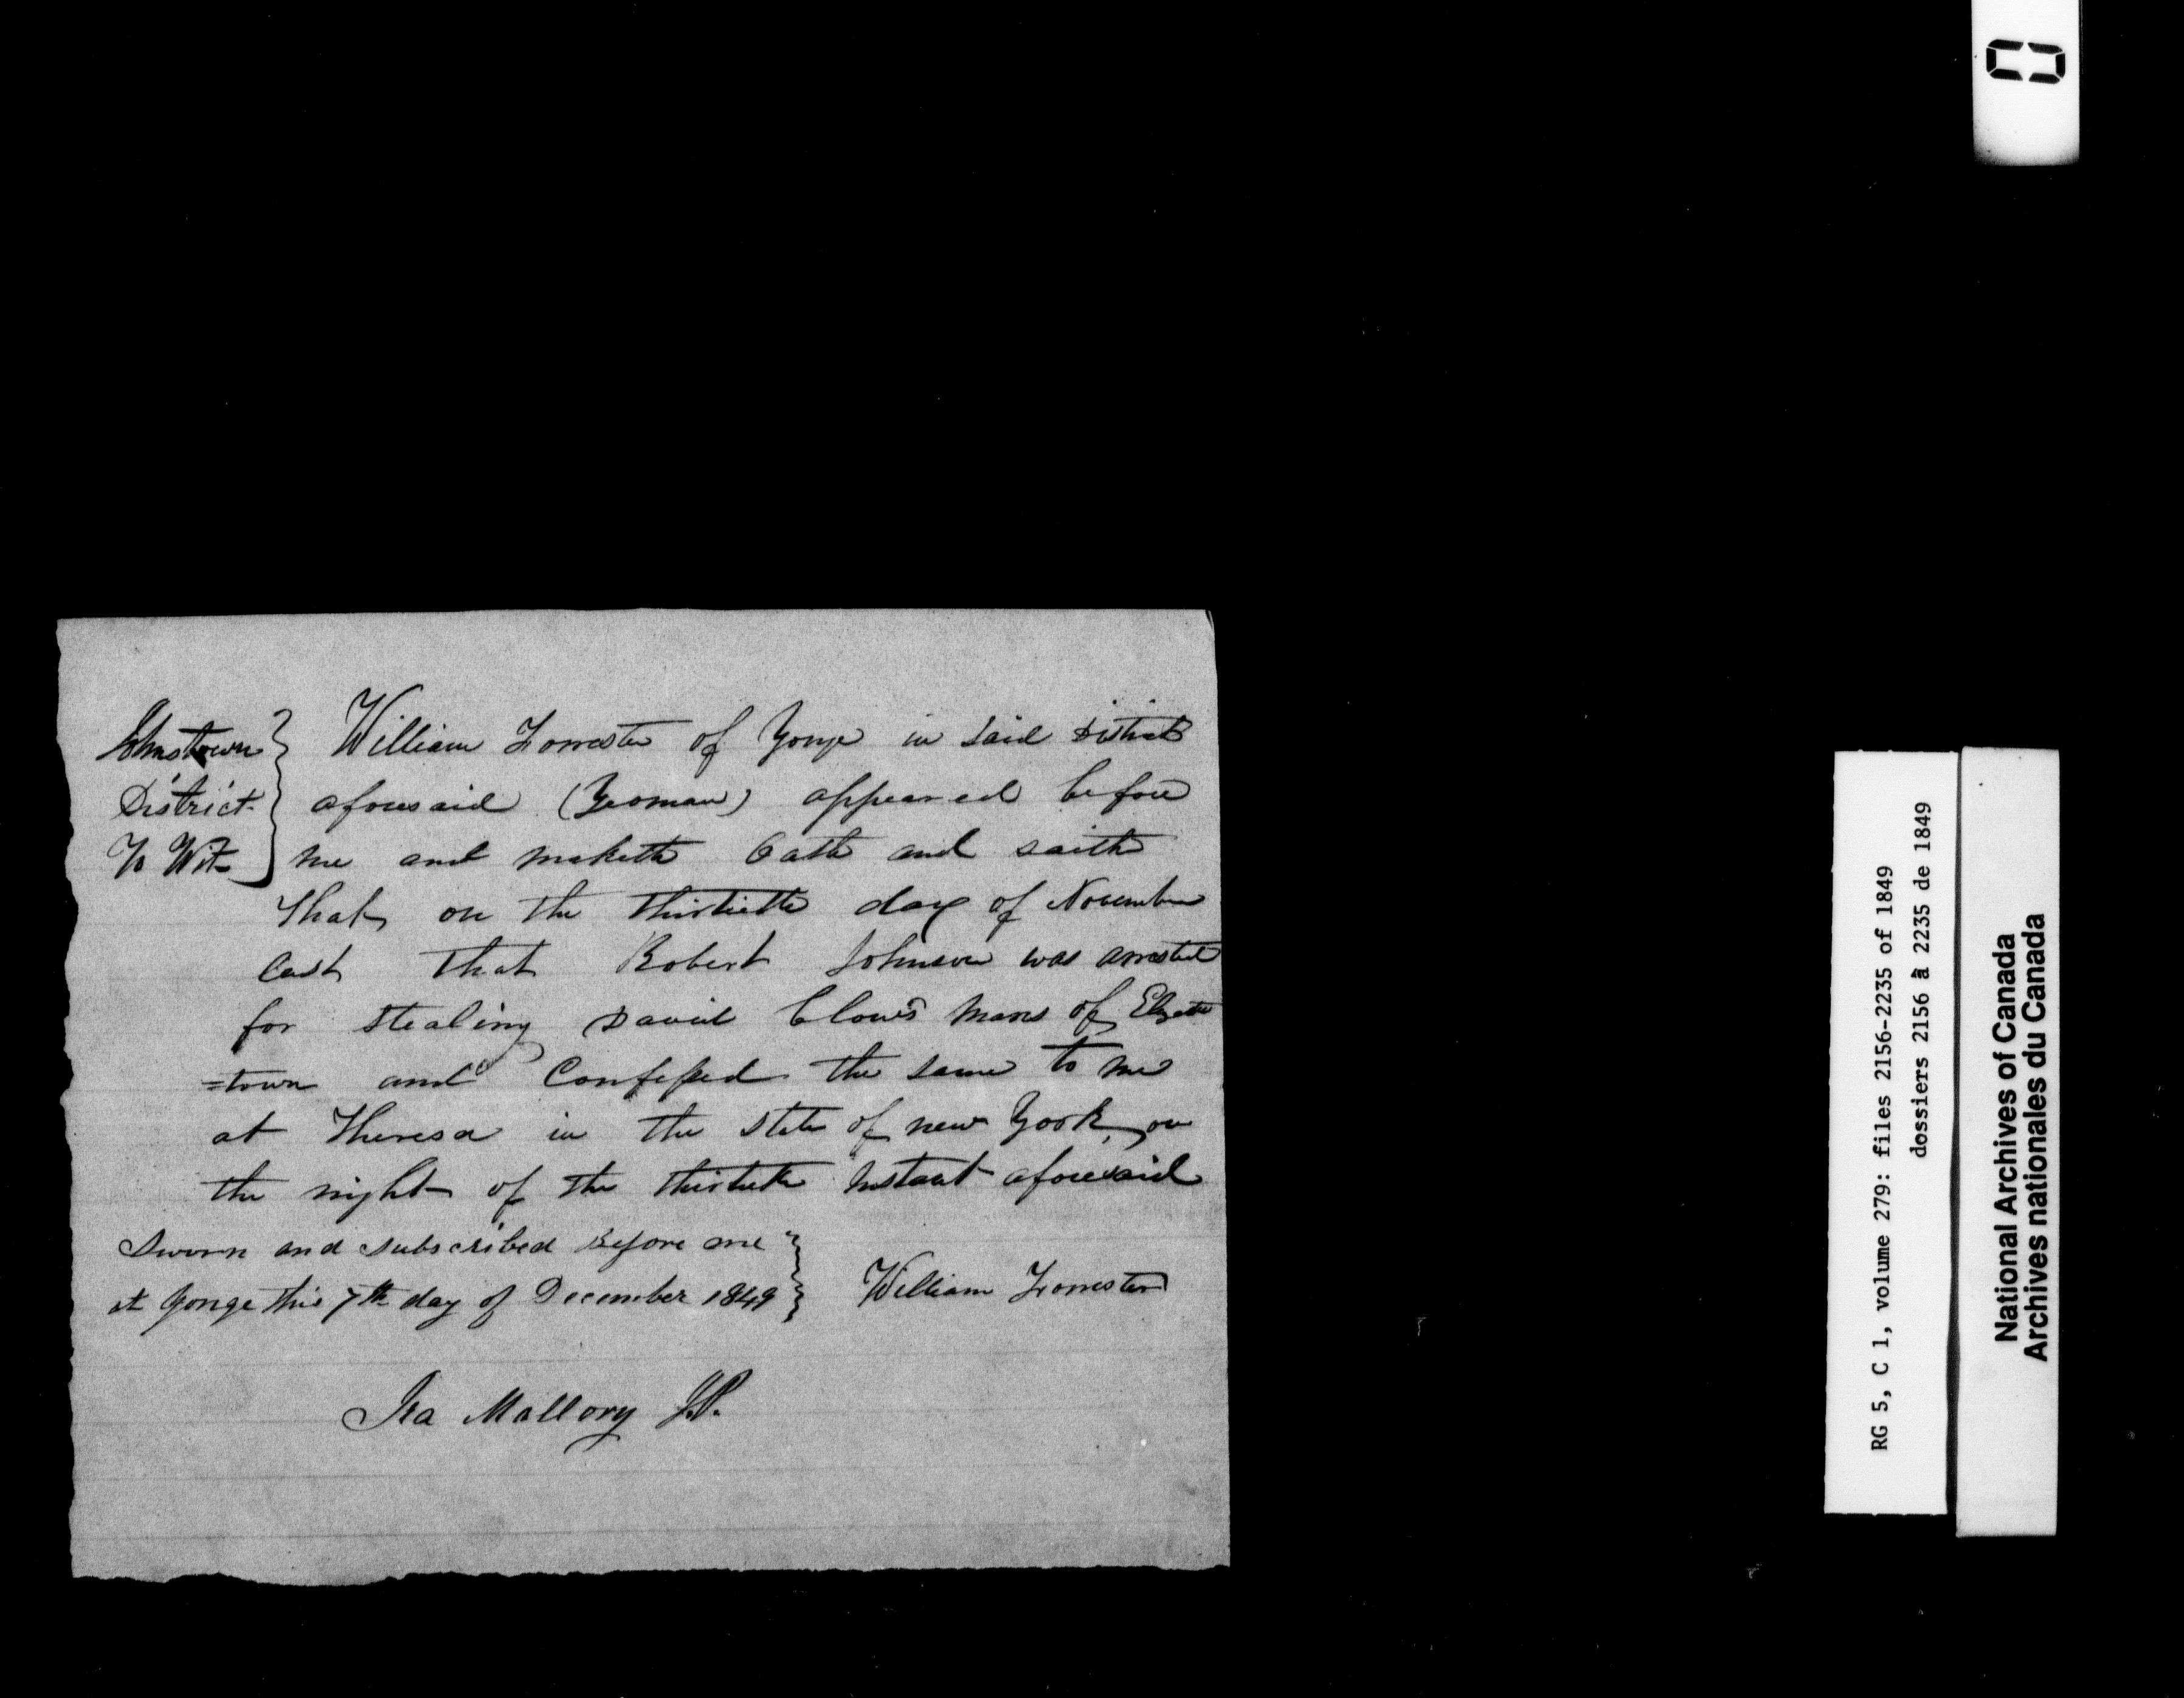 Johnstown
District
To Wit
William Forrester of Yonge in said District
aforesaid (Yeoman) appeared before
me and maketh Oath and saith
That on the thirtieth day of November
last that Robert Johnson was arrested
for stealing David Clow's mare of Elizabeth
=town and Confessed the same to me
at Theresa in the State of new York, on
the night of the thirtieth Instant aforesaid
Sworn and subscribed Before me
at Yonge this 7th day of December 1849
William Forrester
Ira Mallory J.P.
RG 5, C 1, volume 279: files 2156-2235 of 1849
dossiers 2156 à 2235 de 1849
National Archives of Canada
Archives nationales du Canada